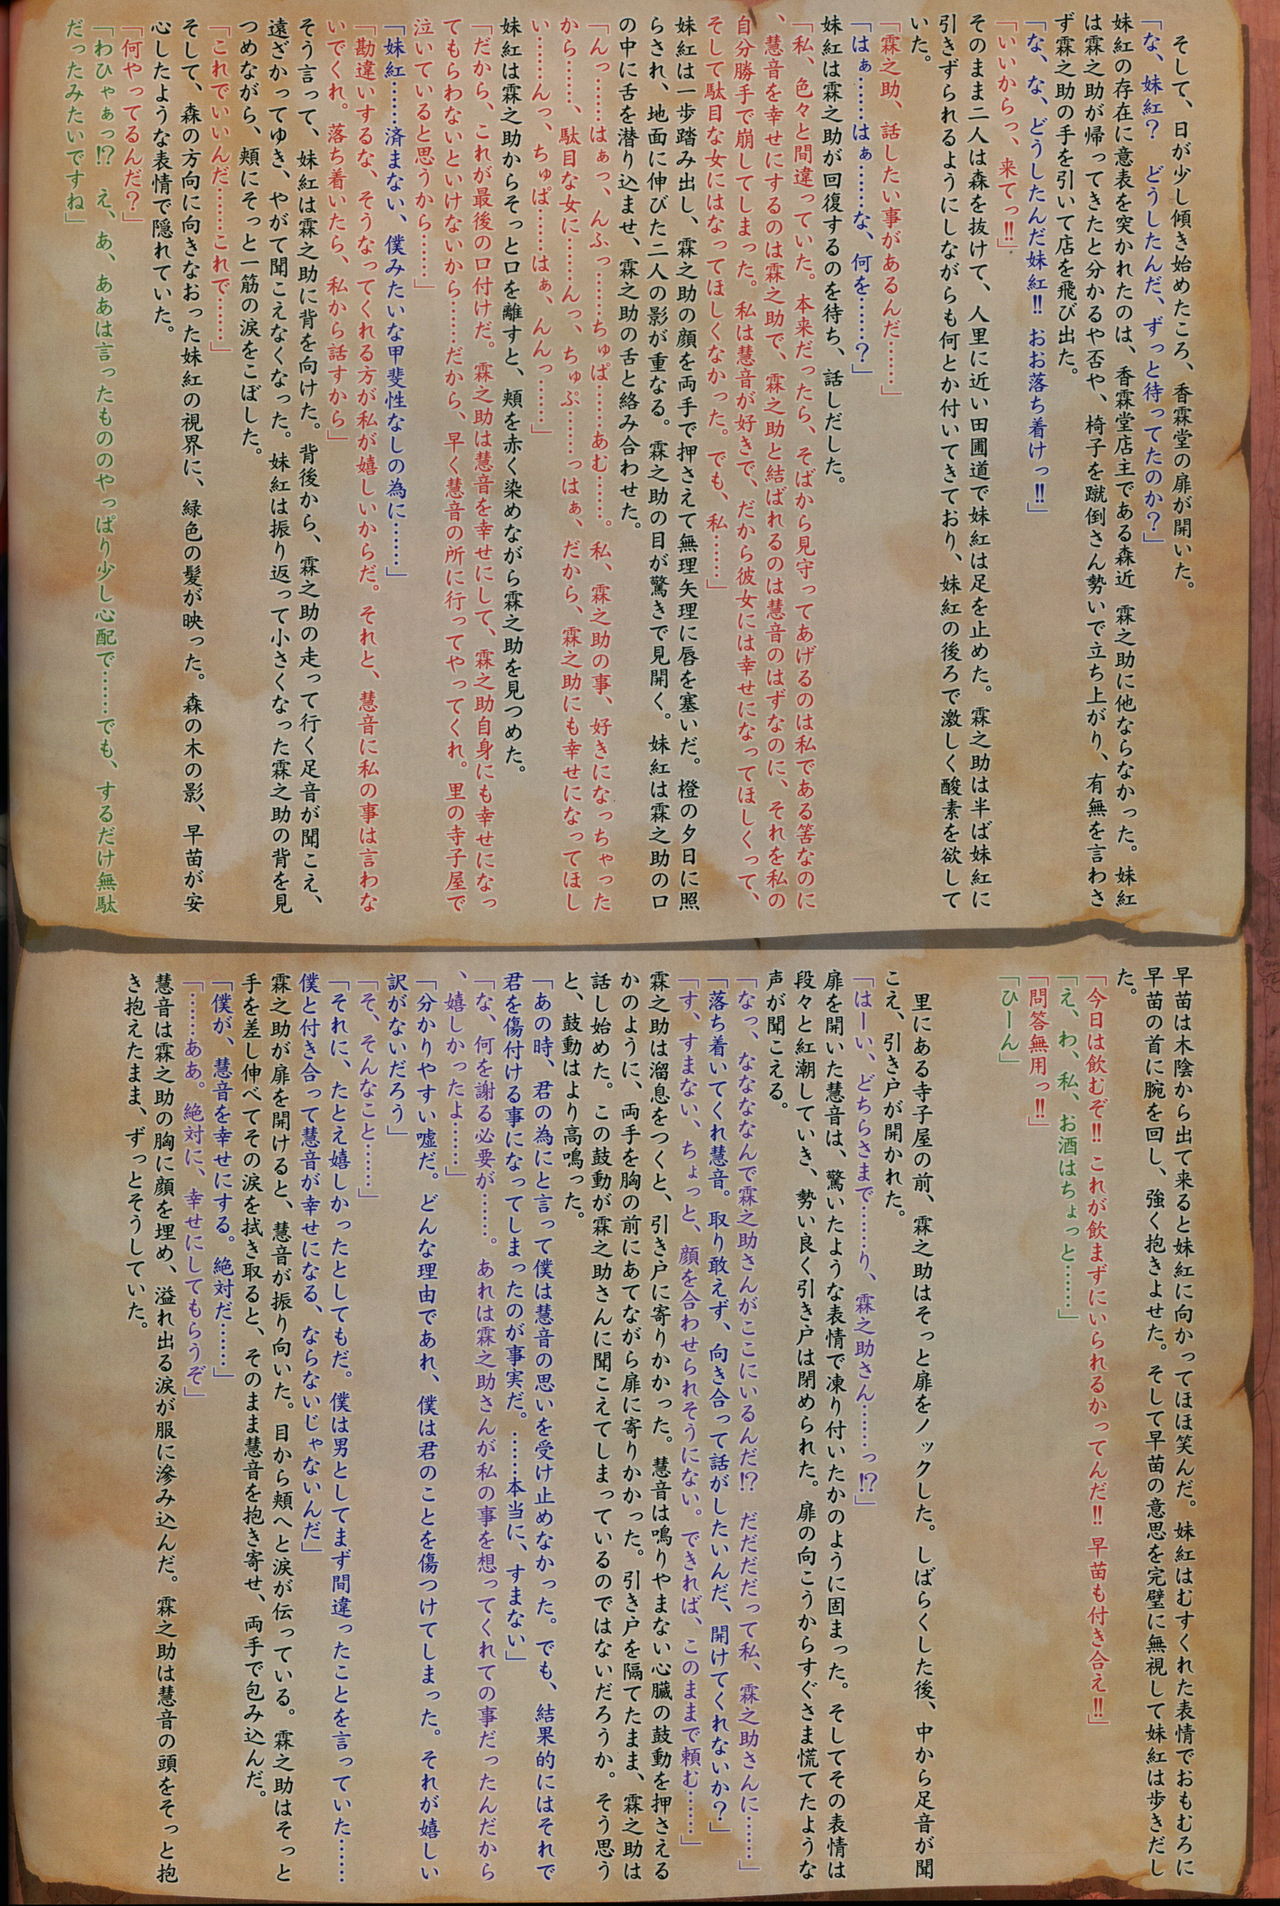 そして、日が少し傾き始めたころ、香霖堂の扉が開いた。
「な、妹紅？　どうしたんだ、ずっと待ってたのか？」
妹紅の存在に意表を突かれたのは、香霖堂店主である森近　霖之助に他ならなかった。妹紅
は霖之助が帰ってきたと分かるや否や、椅子を蹴倒さん勢いで立ち上がり、有無を言わさ
ず霖之助の手を引いて店を飛び出た。
「な、な、どうしたんだ妹紅!! おお落ち着けっ!!」
「いいからっ、来てっ!!」
そのまま二人は森を抜けて、人里に近い田圃道で妹紅は足を止めた。霖之助は半ば妹紅に
引きずられるようにしながらも何とか付いてきており、妹紅の後ろで激しく酸素を欲して
いた。
「霖之助、話したい事があるんだ……」
「はぁ……はぁ……な、何を……？」
妹紅は霖之助が回復するのを待ち、話しだした。
「私、色々と間違っていた。本来だったら、そばから見守ってあげるのは私である筈なのに
、慧音を幸せにするのは霖之助で、霖之助と結ばれるのは慧音のはずなのに、それを私の
自分勝手で崩してしまった。私は慧音が好きで、だから彼女には幸せになってほしくって、
そして駄目な女にはなってほしくなかった。でも、私……」
妹紅は一歩踏み出し、霖之助の顔を両手で押さえて無理矢理に唇を塞いだ。橙の夕日に照
らされ、地面に伸びた二人の影が重なる。霖之助の目が驚きで見開く。妹紅は霖之助の口
の中に舌を潜り込ませ、霖之助の舌と絡み合わせた。
「んっ……はぁっ、んふっ……ちゅぱ……あむ……。私、霖之助の事、好きになっちゃった
から……、駄目な女に……んっ、ちゅぷ……っはぁ、だから、霖之助にも幸せになってほし
い……んっ、ちゅぱ……はぁ、んんっ……」
妹紅は霖之助からそっと口を離すと、頬を赤く染めながら霖之助を見つめた。
「だから、これが最後の口付けだ。霖之助は慧音を幸せにして、霖之助自身にも幸せになっ
てもらわないといけないから……だから、早く慧音の所に行ってやってくれ。里の寺子屋で
泣いていると思うから……」
「妹紅……済まない、僕みたいな甲斐性なしの為に……」
「勘違いするな、そうなってくれる方が私が嬉しいからだ。それと、慧音に私の事は言わな
いでくれ。落ち着いたら、私から話すから」
そう言って、妹紅は霖之助に背を向けた。背後から、霖之助の走って行く足音が聞こえ、
遠ざかってゆき、やがて聞こえなくなった。妹紅は振り返って小さくなった霖之助の背を見
つめながら、頬にそっと一筋の涙をこぼした。
「これでいいんだ……これで……」
そして、森の方向に向きなおった妹紅の視界に、緑色の髪が映った。森の木の影、早苗が安
心したような表情で隠れていた。
「何やってるんだ？」
「わひゃぁっ!? え、あ、ああは言ったもののやっぱり少し心配で……でも、するだけ無駄
だったみたいですね」
早苗は木陰から出て来ると妹紅に向かってほほ笑んだ。妹紅はむすくれた表情でおもむろに
早苗の首に腕を回し、強く抱きよせた。そして早苗の意思を完璧に無視して妹紅は歩きだし
た。
「今日は飲むぞ!! これが飲まずにいられるかってんだ!! 早苗も付き合え!!」
「え、わ、私、お酒はちょっと……」
「問答無用っ!!」
「ひーん」
里にある寺子屋の前、霖之助はそっと扉をノックした。しばらくした後、中から足音が聞
こえ、引き戸が開かれた。
「はーい、どちらさまで……り、霖之助さん……っ!?」
扉を開いた慧音は、驚いたような表情で凍り付いたかのように固まった。そしてその表情は
段々と紅潮していき、勢い良く引き戸は閉められた。扉の向こうからすぐさま慌てたような
声が聞こえる。
「なっ、なななんで霖之助さんがここにいるんだ!? だだだだって私、霖之助さんに……」
「落ち着いてくれ慧音。取り敢えず、向き合って話がしたいんだ、開けてくれないか？」
「す、すまない、ちょっと、顔を合わせられそうにない。できれば、このままで頼む……」
霖之助は溜息をつくと、引き戸に寄りかかった。慧音は鳴りやまない心臓の鼓動を押さえる
かのように、両手を胸の前にあてながら扉に寄りかかった。引き戸を隔てたまま、霖之助は
話し始めた。この鼓動が霖之助さんに聞こえてしまっているのではないだろうか。そう思う
と、鼓動はより高鳴った。
「あの時、君の為にと言って僕は慧音の思いを受け止めなかった。でも、結果的にはそれで
君を傷付ける事になってしまったのが事実だ。……本当に、すまない」
「な、何を謝る必要が……。あれは霖之助さんが私の事を想ってくれての事だったんだから
、嬉しかったよ……」
「分かりやすい嘘だ。どんな理由であれ、僕は君のことを傷つけてしまった。それが嬉しい
訳がないだろう」
「そ、そんなこと……」
「それに、たとえ嬉しかったとしてもだ。僕は男としてまず間違ったことを言っていた……
僕と付き合って慧音が幸せになる、ならないじゃないんだ」
霖之助が扉を開けると、慧音が振り向いた。目から頬へと涙が伝っている。霖之助はそっと
手を差し伸べてその涙を拭き取ると、そのまま慧音を抱き寄せ、両手で包み込んだ。
「僕が、慧音を幸せにする。絶対だ……」
「……ああ。絶対に、幸せにしてもらうぞ」
慧音は霖之助の胸に顔を埋め、溢れ出る涙が服に滲み込んだ。霖之助は慧音の頭をそっと抱
き抱えたまま、ずっとそうしていた。